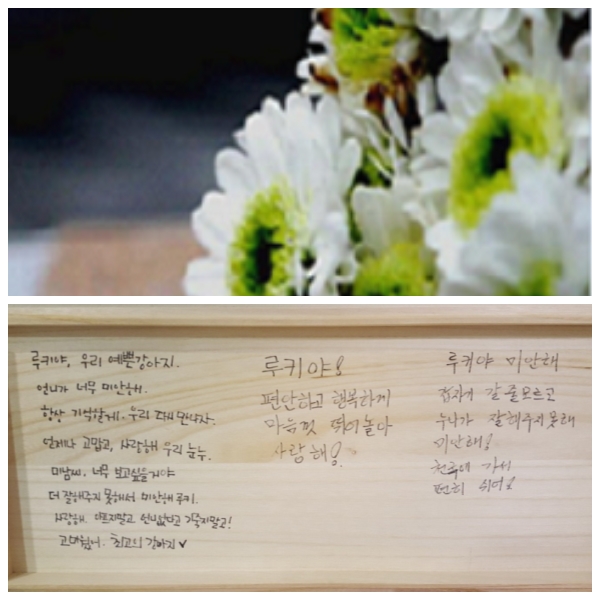 루키야, 우리 예쁜강아지.
언니가 너무 미안해.
항상 기억할게. 우리 또 만나자.
언제나 고맙고, 사랑해 우리 눈누.
너무 보고싶을거야
더 잘해주지 못해서 미안해 루키.
사랑해. 아프지말고 언니없다고 기죽지말고!
고마웠어. 최고의 강아지 ♥
루키야!
편안하고 행복하게
마음껏 뛰어놀아
사랑해!
루키야 미안해
갑자기 갈줄모르고
누나가 잘해주지못해
미안해!
천국에 가서
편히 쉬어!